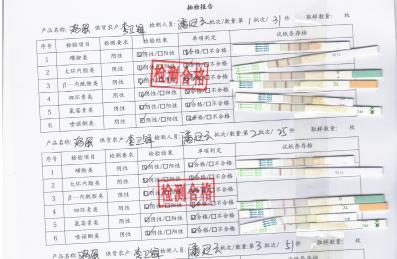 抽检报告
产品名称: 鸡蛋 供货农户: 检测人员: 批次/数量: 第 1 批次/ 31 件 取样数量: 枚
序号 检验项目 检测要求 检验结果 单项判定 试纸条存档
1 磺胺类 阴性 ☑阴性/□阳性 ☑合格/□不合格
2 大环内酯类 阴性 ☑阴性/□阳性 ☑合格/□不合格
3 β—内酰胺类 阴性 ☑阴性/□阳性 ☑合格/□不合格
4 四环素类 阴性 ☑阴性/□阳性 ☑合格/□不合格
5 氯霉素类 阴性 ☑阴性/□阳性 ☑合格/□不合格
6 喹诺酮类 阴性 ☑阴性/□阳性 ☑合格/□不合格
检测合格
产品名称: 鸡蛋 供货农户: 检测人员: 批次/数量: 第 2 批次/ 25 件 取样数量: 枚
序号 检验项目 检测要求 检验结果 单项判定 试纸条存档
1 磺胺类 阴性 ☑阴性/□阳性 ☑合格/□不合格
2 大环内酯类 阴性 ☑阴性/□阳性 ☑合格/□不合格
3 β—内酰胺类 阴性 ☑阴性/□阳性 ☑合格/□不合格
4 四环素类 阴性 ☑阴性/□阳性 ☑合格/□不合格
5 氯霉素类 阴性 ☑阴性/□阳性 ☑合格/□不合格
6 喹诺酮类 阴性 ☑阴性/□阳性 ☑合格/□不合格
检测合格
产品名称: 鸡蛋 供货农户: 检测人员: 批次/数量: 第 3 批次/ 件 取样数量: 枚